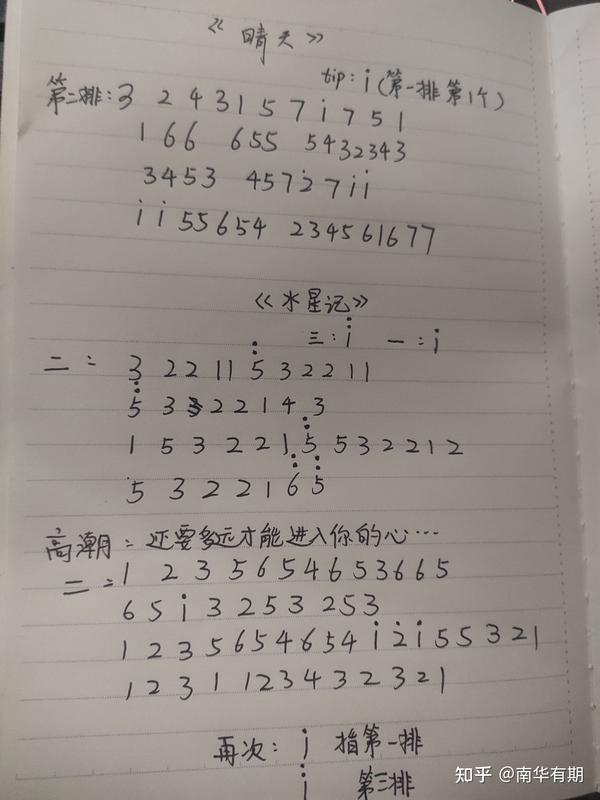 《晴天》
tip: i (第一排第1个)
第二排: 3 2 4 3 1 5 7 i 7 5 1
1 6 6 6 5 5 5 4 3 2 3 4 3
3 4 5 3 4 5 7 2̇ 7 i i
i i 5 5 6 5 4 2 3 4 5 6 1 6 7 7
《水星记》
三: i 一: i
二: 3 2 2 1 1 5 3 2 2 1 1
5 3 3 2 2 1 4 3
1 5 3 2 2 1 5 5 3 2 2 1 2
5 3 2 2 1 6 5
高潮: 还要多远才能进入你的心…
二: 1 2 3 5 6 5 4 6 5 3 6 6 5
6 5 i 3 2 5 3 2 5 3
1 2 3 5 6 5 4 6 5 4 i 2̇ i 5 5 3 2 1
1 2 3 1 1 2 3 4 3 2 3 2 1
再次: i 指第一排
i 第三排
知乎 @南华有期